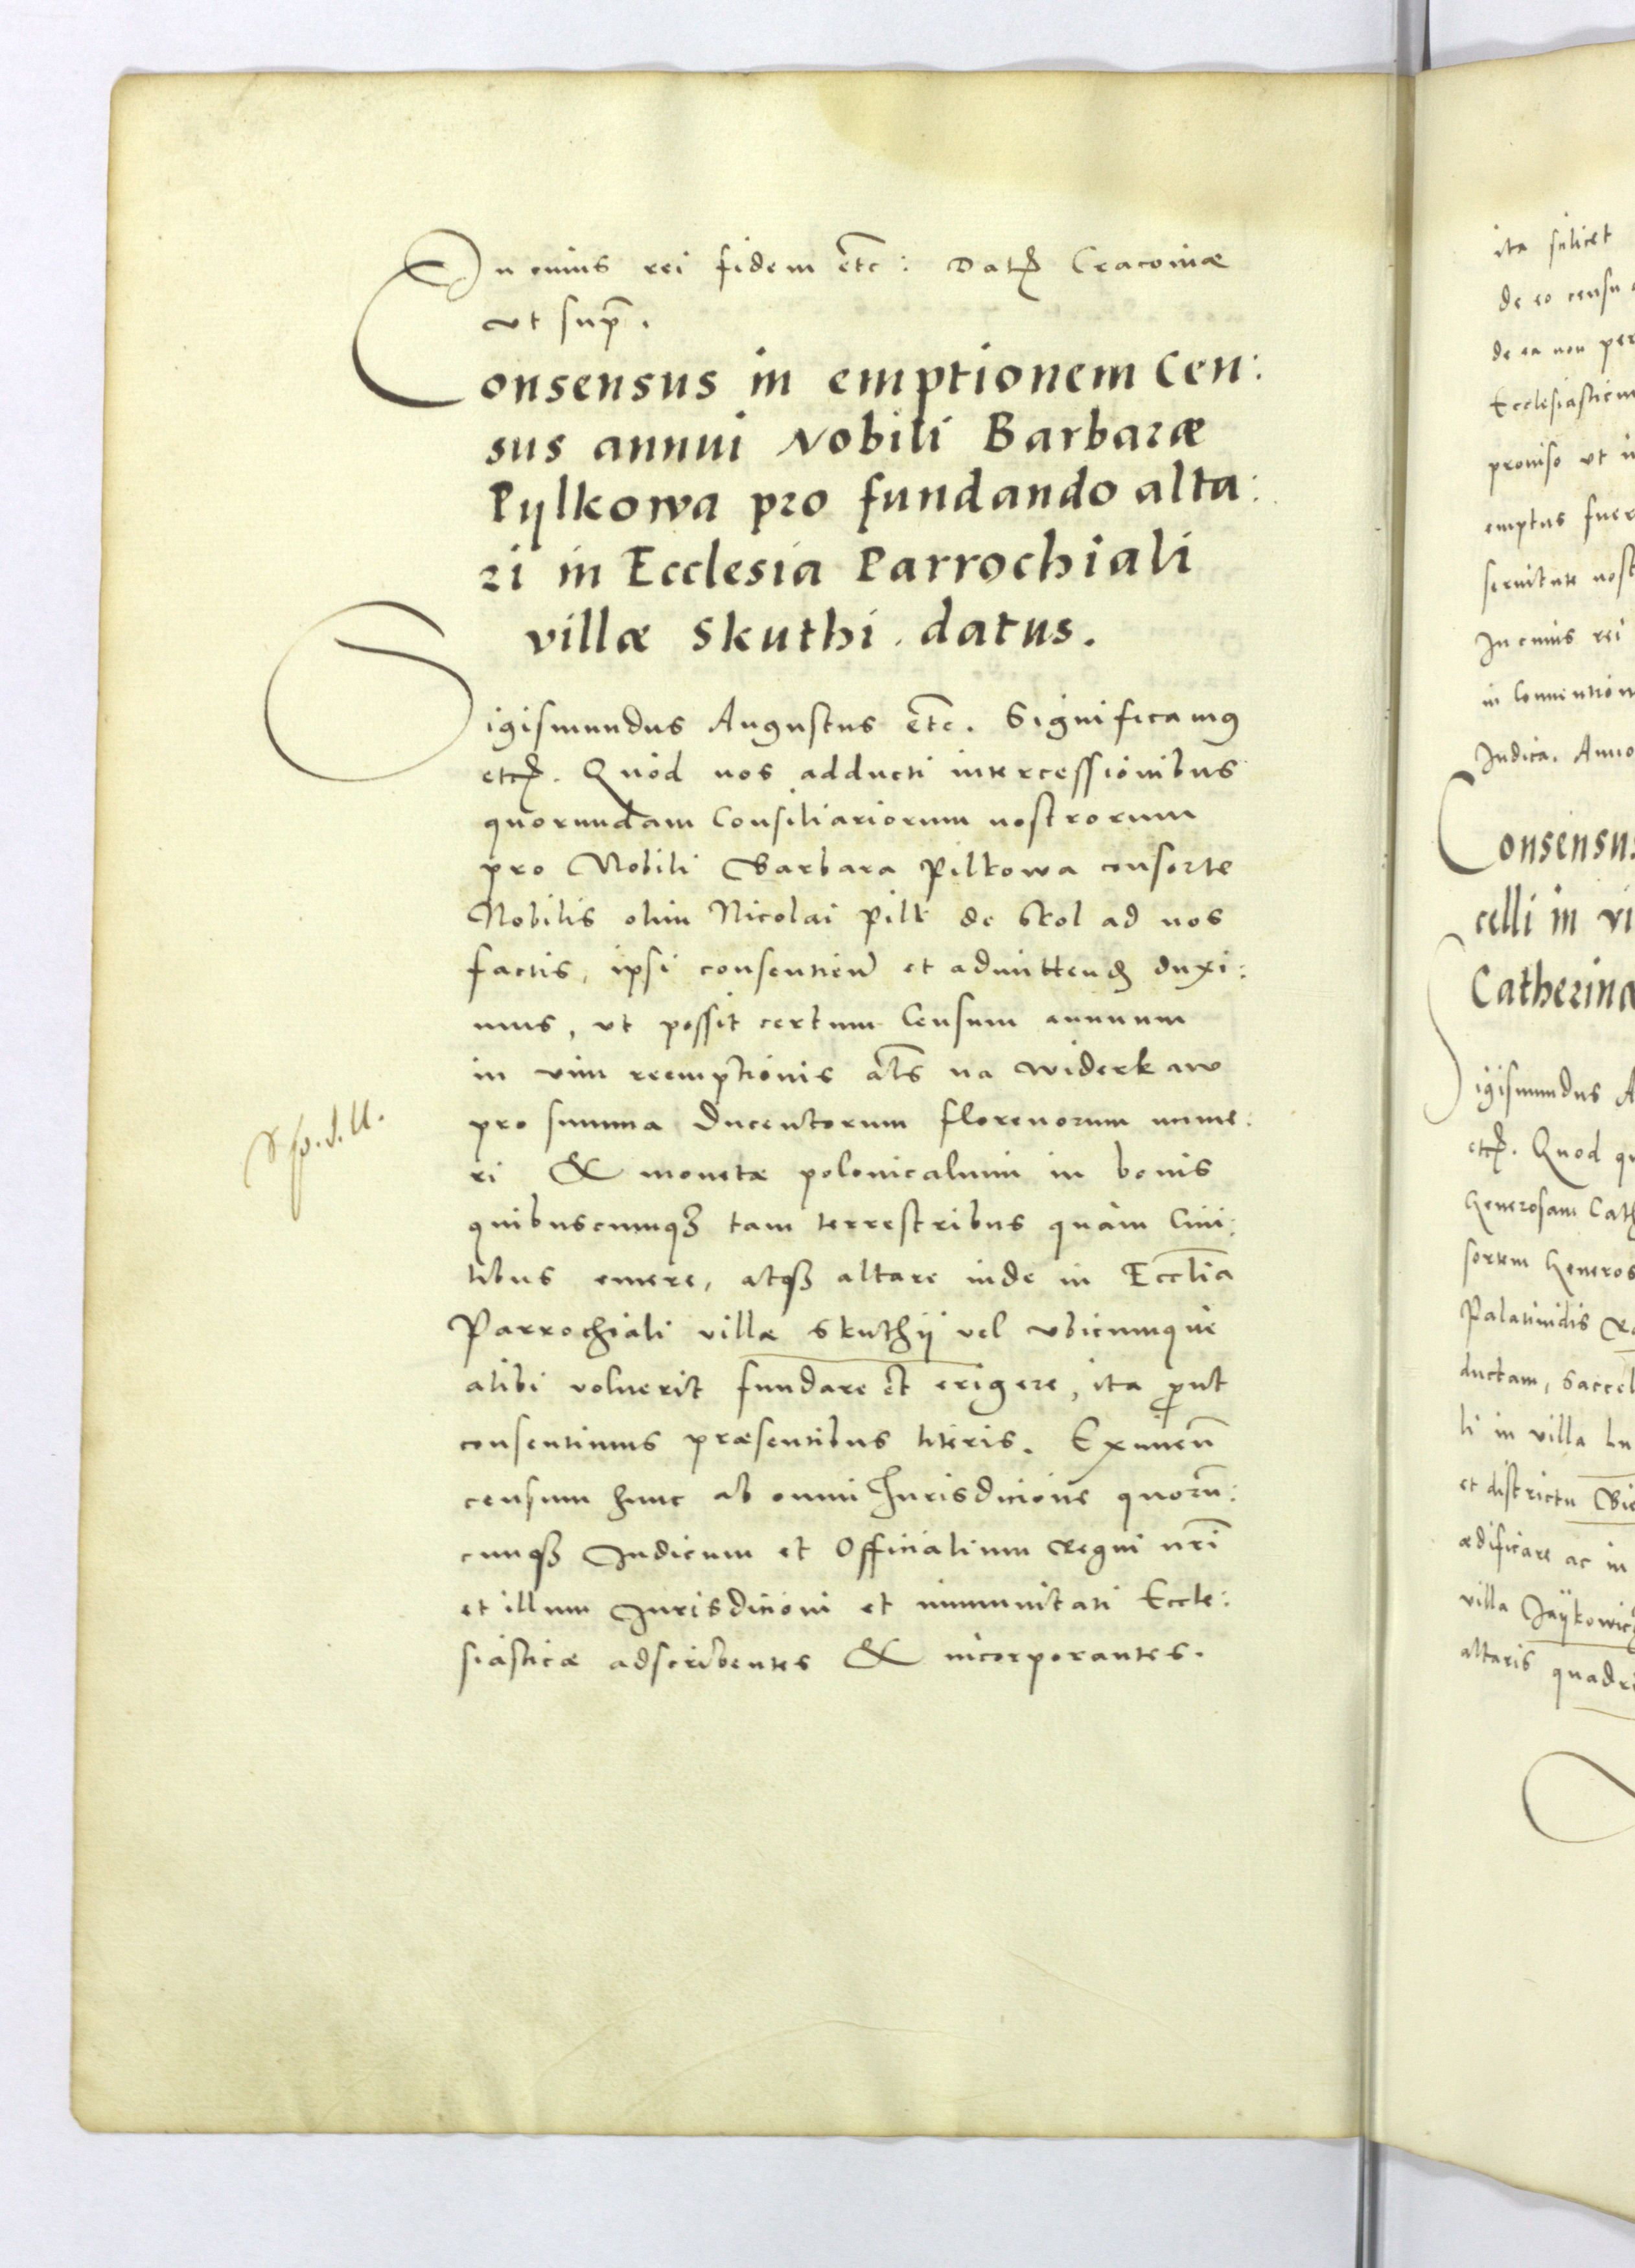 In cuius rei fidem etc: Dat Cracoviæ
ut sup.
Consensus in emptionem Cen:
sus annui Nobili Barbaræ
Pylkowa pro fundando alta:
ri in Ecclesia Parrochiali
villæ Skuthi datus.
Sigismundus Augustus etc. Significamus
etc. Quod nos adducti intercessionibus
quorundam Consiliariorum nostrorum
pro Nobili Barbara Pilkowa consorte
Nobilis olim Nicolai Pilk de Skol ad nos
factis, ipsi consentien et admittend duxi:
mus, ut possit certum Censum annuum
in vim reemptionis als na widerkaw
pro summa Ducentorum florenorum nume:
ri & monetæ polonicalium in bonis
quibuscumqꝫ tam terrestribus quàm Civi:
libus emere, atqꝫ altare inde in Ecclia
Parrochiali villæ Skuthij vel ubicumque
alibi voluerit fundare et erigere, ita prout
consentimus præsentibus literis. Eximen
censum hunc ab omni Jurisdicione quorun:
cunqꝫ Judicum et Officialium Regni nri
et illum Jurisdicioni et immunitati Eccle:
siasticæ adscribentes & incorporantes.
ita scilicet
de eo censu
de ea non per
Ecclesiasticu
proviso ut i
emptus fuer
servitute nost
In cuius rei
in Convention
Judica. Anno
Consensus
celli in vi
Catherina
Sigismundus A
etc. Quod qu
Generosam Cath
sortem Generos
Palatinidis Ra
ductam, Saccel
li in villa Lu
et districtu Bie
ædificare ac in
villa Jaykowic
altaris quadri